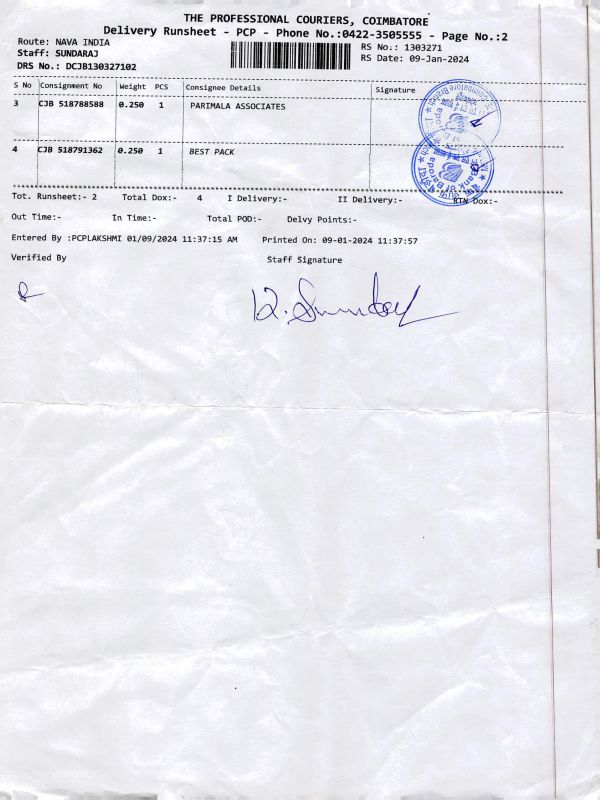 THE PROFESSIONAL COURIERS, COIMBATORE
Delivery Runsheet - PCP - Phone No.:0422-3505555 - Page No.:2
Route: NAVA INDIA
Staff: SUNDARAJ
DRS No.: DCJB130327102
RS No.: 1303271
RS Date: 09-Jan-2024
S No Consignment No Weight PCS Consignee Details Signature
3 CJB 518788588 0.250 1 PARIMALA ASSOCIATES
4 CJB 518791362 0.250 1 BEST PACK
Tot. Runsheet:- 2 Total Dox:- 4 I Delivery:- II Delivery:- RTN Dox:-
Out Time:- In Time:- Total POD:- Delvy Points:-
Entered By :PCPLAKSHMI 01/09/2024 11:37:15 AM Printed On: 09-01-2024 11:37:57
Verified By Staff Signature
Bank of Baroda